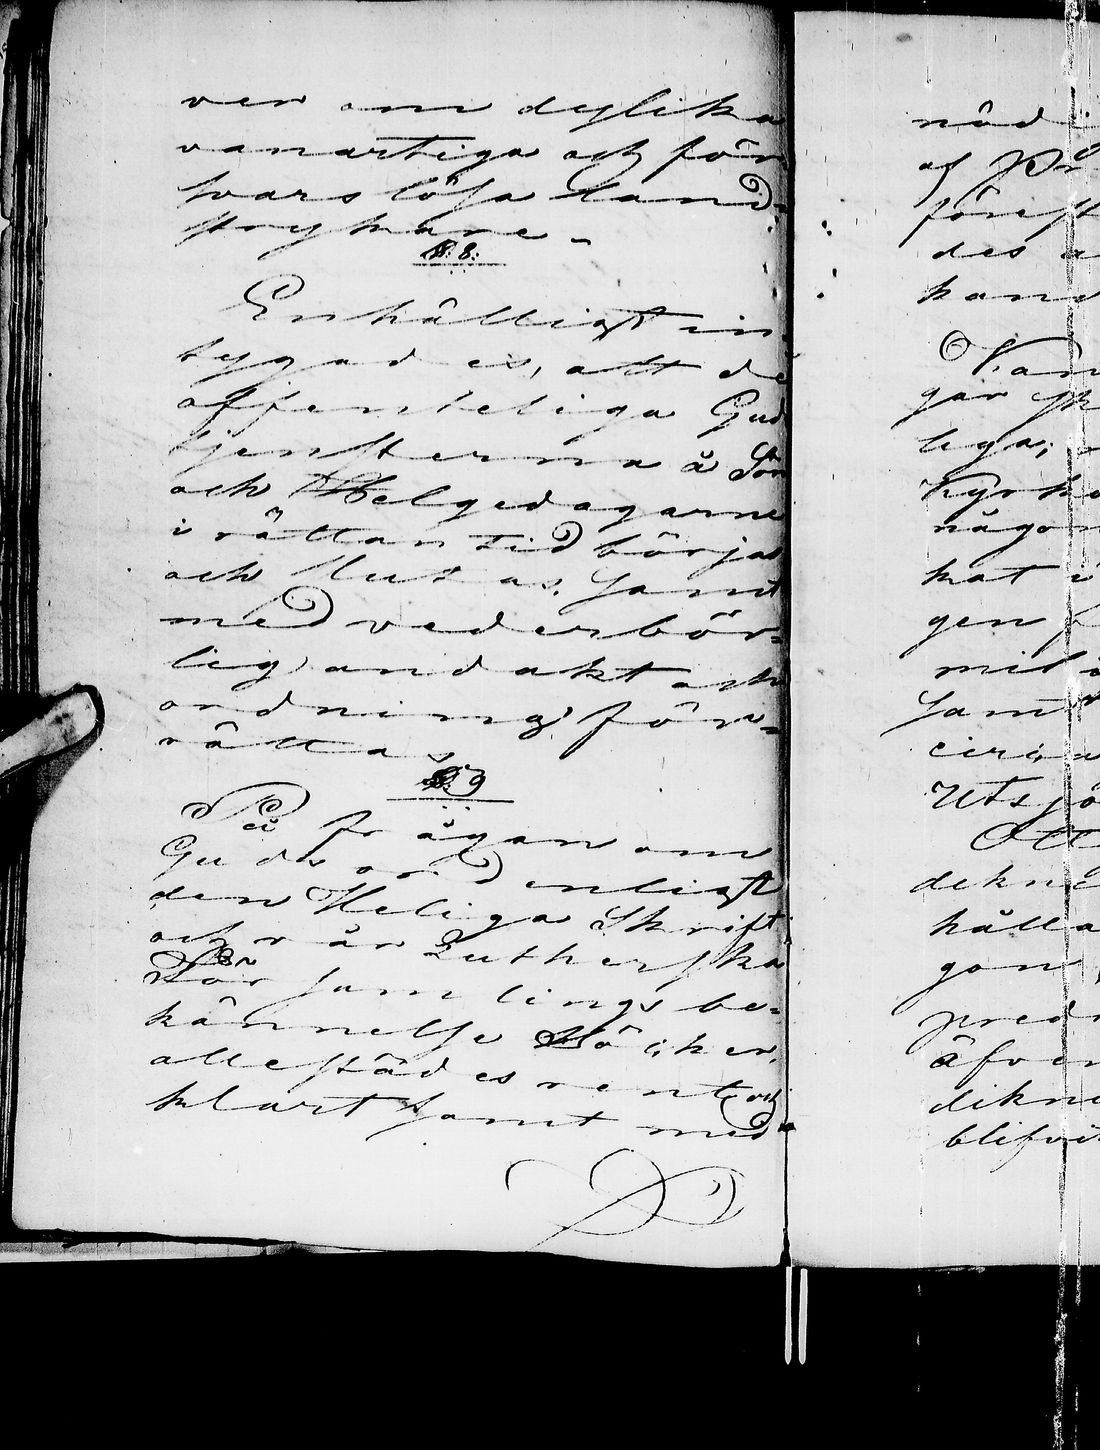 ver om dylika
vanartiga och för
svarslösa land-
strykare.
§. 8.
Enhälligt in
tygades, att de
offenteliga Gud
tjensterna å Sön
och Helgedagarne
i rättan tid börjas
och slutas, samt
med vederbör-
lig andakt och
ordning för-
rättas.
§ 9
På frågan om
Guds ord enligt
den Heliga Skrift
och vår Lutherska
För samlings be-
kännelse Böcker,
allestädes rent och
klart samt med
nöd
af Pr
förest
des a
kand
Kan
gar sk
liga;
Kyrko
någon
kat i
gen
mil
samt
circa
Utsjo
Ott
dekne
hålla
gon
pred
äfven
dikne
blifvit